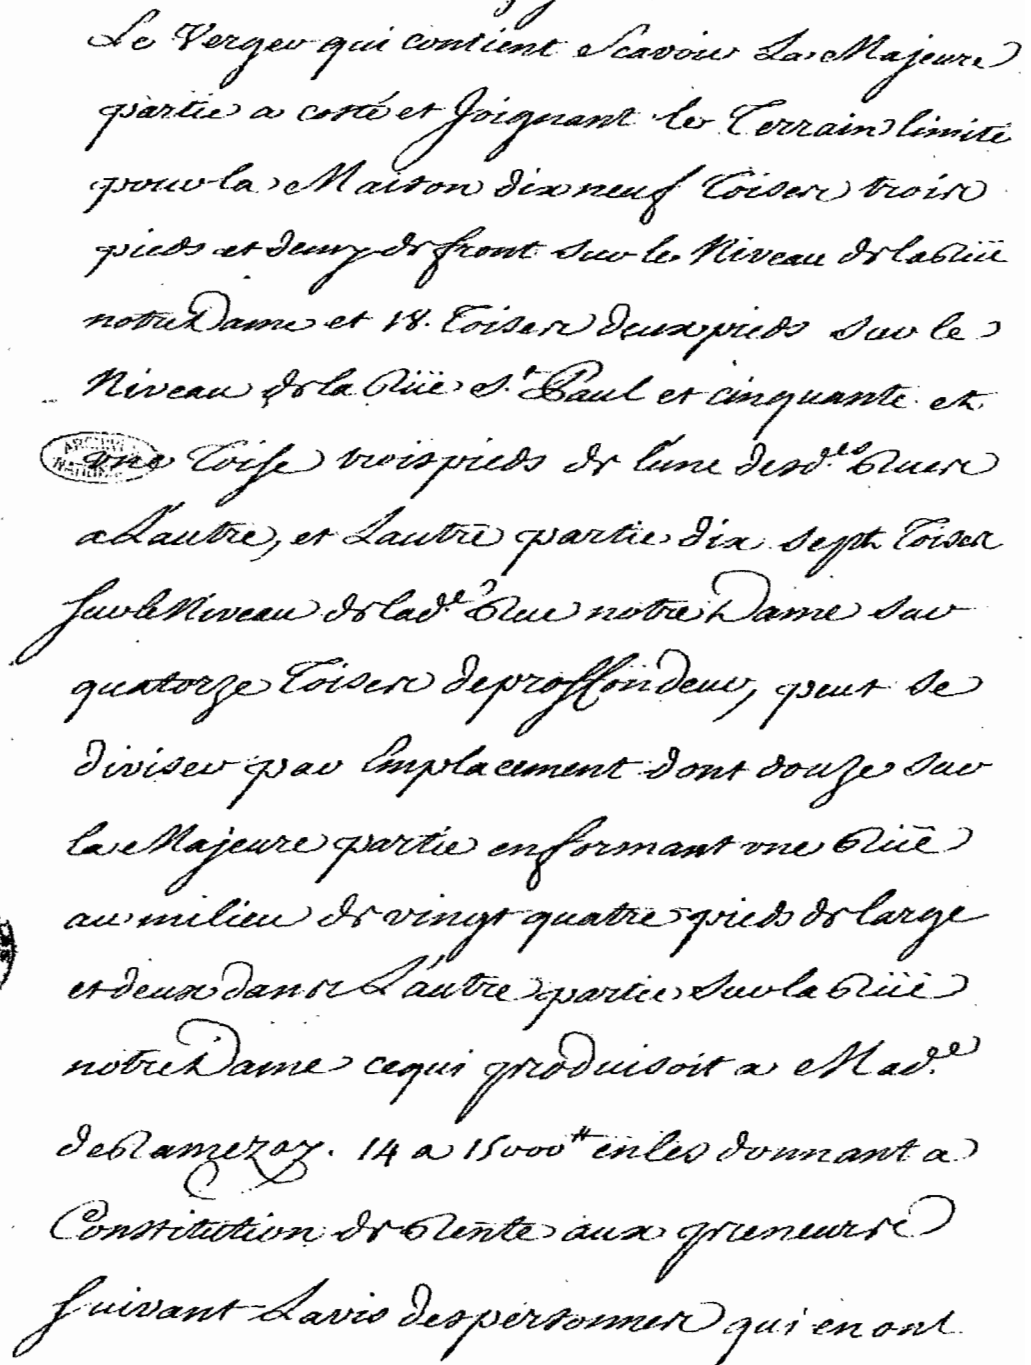 Le Verger qui contient Scavoir La Majeure
partie a costé et Joignant le Terrain limité
pour la Maison dix neuf Toises trois
pieds et demy de front sur le Niveau de la Rüe
notre Dame et 18. Toises deux pieds sur le
Niveau de la Rüe St. Paul et cinquante et
une Toise trois pieds de l'une desd.es Rues
a Lautre, et Lautre partie dix sept Toises
sur le Niveau de lad.e Rue notre Dame sur
quatorze Toises de proffondeur, peut se
diviser par Emplacement dont douze sur
la Majeure partie en formant une Rüe
au milieu de vingt quatre pieds de large
et deux dans L'autre partie sur la Rüe
notre Dame ce qui produisoit a Mad.e
de Ramezay. 14 a 15000# en les donnant a
Constitution de Rente aux preneurs
suivant Lavis des personnes qui en ont